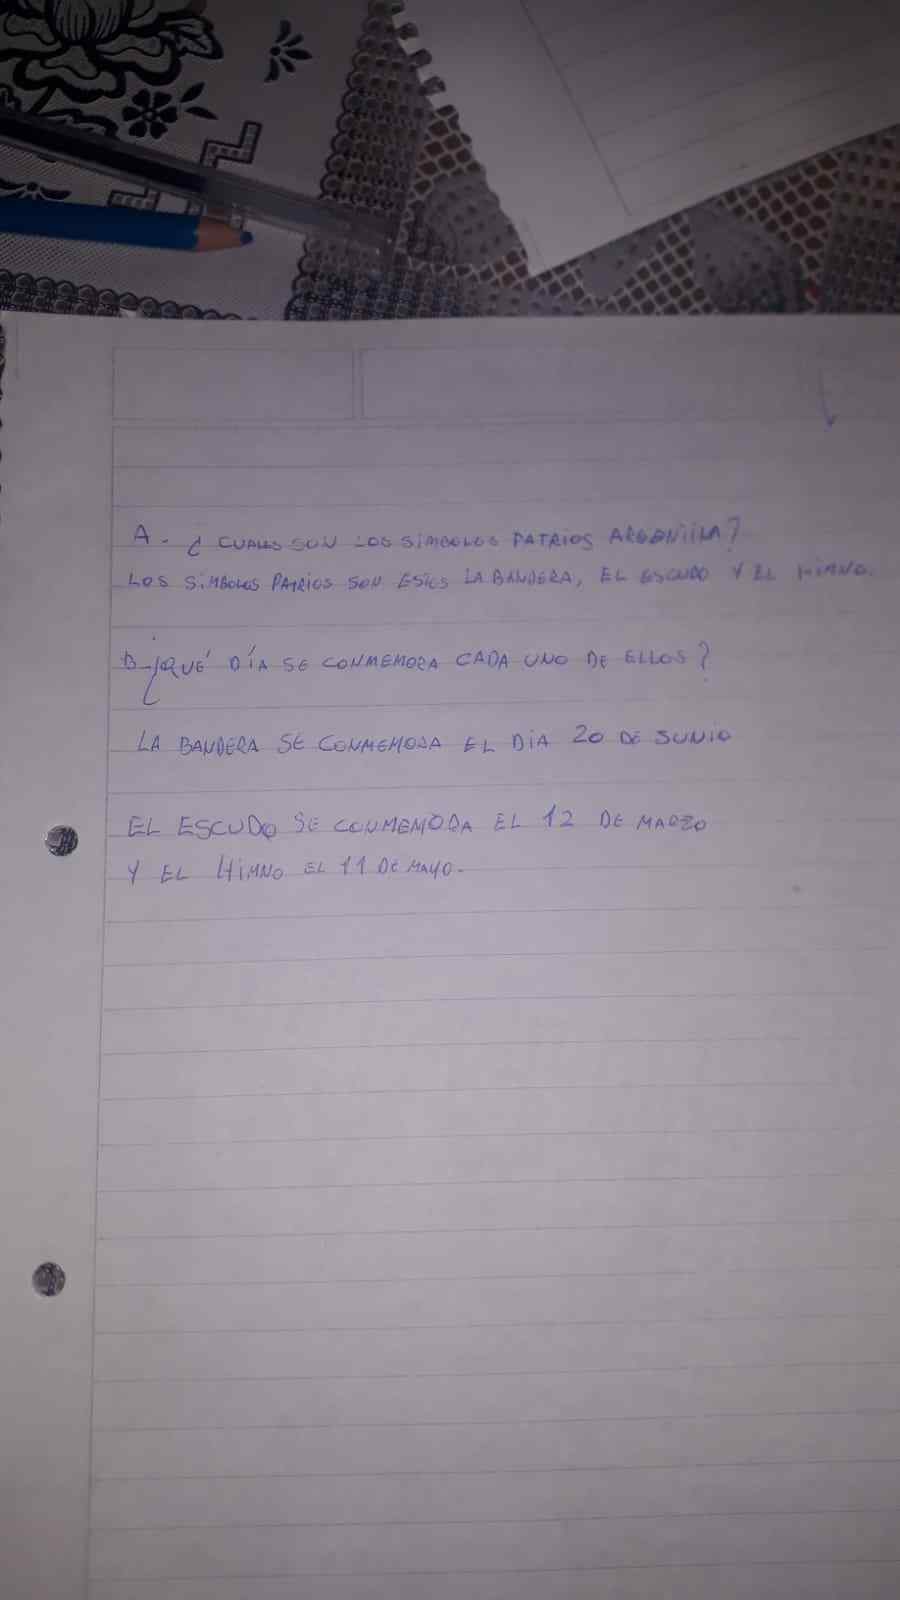 A. ¿CUALES SON LOS SÍMBOLOS PATRIOS ARGENTINA?
LOS SÍMBOLOS PATRIOS SON ESTOS LA BANDERA, EL ESCUDO Y EL HIMNO.
B-¿QUÉ DÍA SE CONMEMORA CADA UNO DE ELLOS?
LA BANDERA SE CONMEMORA EL DIA 20 DE JUNIO
EL ESCUDO SE CONMEMORA EL 12 DE MARZO
Y EL HIMNO EL 11 DE MAYO.